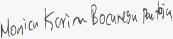 Monica Karim Bocanegra Pantoja